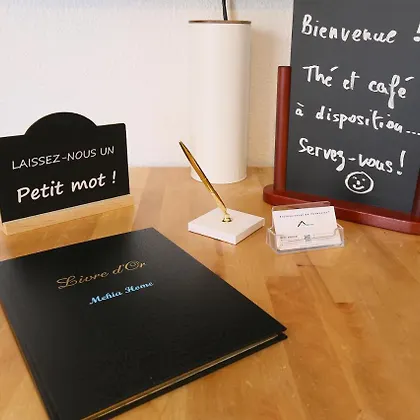 Bienvenue !
Thé et café
à disposition...
Servez-vous !
LAISSEZ-NOUS UN
Petit mot !
Livre d'Or
Mehia Home